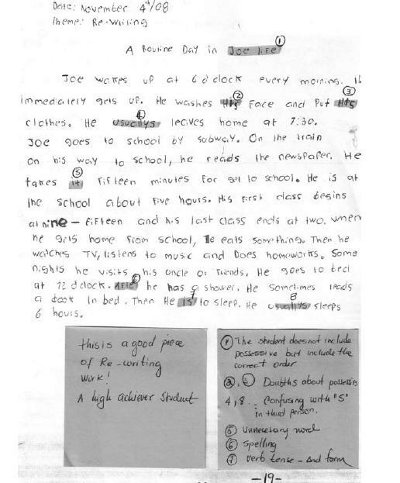 Date: November 4th/08
Theme: Re-writing
①
A Routine Day in Joe life
Joe wakes up at 6 o'clock every morning. H
immediately gets up. He washes his ② face and put his ③
clothes. He usually's ④ leaves home at 7:30.
Joe goes to school by subway. On the train
on his way to school, he reads the newspaper. He
takes it ⑤ fifteen minutes for get to school. He is at
the school about five hours. His first class begins
at nine - fifteen and his last class ends at two. when
he gets home from school, he eats something. Then he
watches TV, listens to music and does homeworks. Some
nights he visits his uncle or friends. He goes to bed
at 12 o'clock. he has a shower. He sometimes reads
a book in bed. Then He is to sleep. He usually's 8 sleeps
6 hours.
this is a good piece
of Re-writing
work!
A high achiever student
① The student does not include
possessive but include the
correct order
②,③ Doubths about possessives
4, 8.. Confusing with "S"
in third person.
⑤ Unnecesary word
⑥ Spelling
⑦ verb tense - and form
-19-